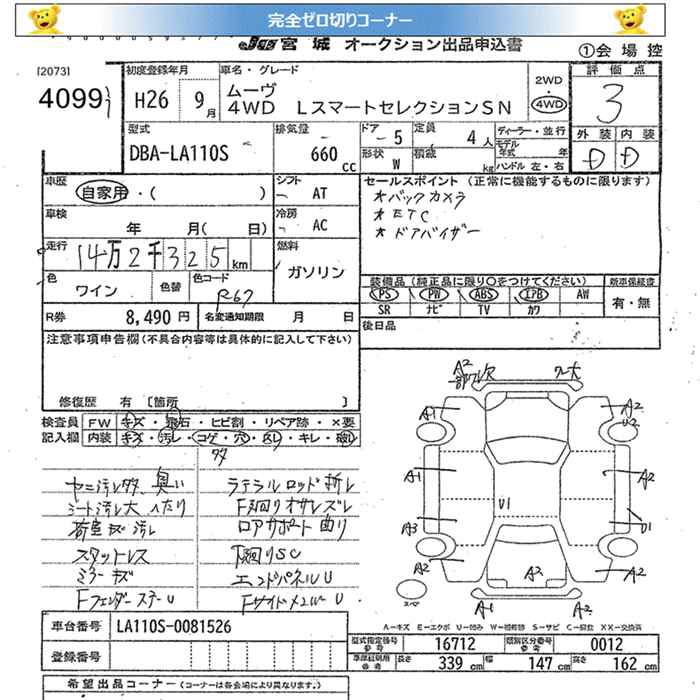 完全ゼロ切りコーナー
JU 宮城 オークション出品申込書
①会場控
[2073]
4099
初度登録年月
H26 9月
車名・グレード
ムーヴ
4WD LスマートセレクションSN
2WD
・
4WD
評価点
3
外装 内装
D D
型式
DBA-LA110S
排気量
660 CC
ドア - 5
形状 W
定員 4人
積載 kg
ディーラー・並行
モデル年式 年
ハンドル 左・右
車歴
自家用・( )
シフト AT
セールスポイント (正常に機能するものに限ります)
*バックカメラ
*ETC
*ドアバイザー
車検 年 月( 日)
冷房 AC
走行 14万2千325km
燃料 ガソリン
色 ワイン 色替 色コード R67
装備品(純正品に限り○をつけてください)
新車保証書
PS PW ABS エアB AW
SR ナビ TV カワ
有・無
R券 8,490円 名変通知期限 月 日
後日品
注意事項申告欄(不具合内容等は具体的に記入して下さい)
修復歴 有 [箇所 ]
検査員 FW キズ・飛石・ヒビ割・リペア跡・×要
記入欄 内装 キズ・汚レ・コゲ・穴・ベタ・キレ・破レ
シート汚レ大 ヘたり
荷室キズ 汚レ
スタットレス
ミラーキズ
Fフェンダーステー U
ラテラルロッド折レ
F廻りオサレズレ
ロアサポート曲り
下廻りSC
エンドパネルU
FサイドメンバーU
A2
A1
A2
U2
A1
A2
U1
A3
U1
A2
A2
A2
A1
A2
スペア
A－キズ E－エクボ U－凹み W－補修跡 S－サビ C－腐蝕 XX－交換済
車台番号 LA110S-0081526
登録番号
型式指定番号 参考 16712
類別区分番号 参考 0012
車庫証明用 参考 長さ 339 cm 幅 147 cm 高さ 162 cm
希望出品コーナー (コーナーは各会場により異なります。)